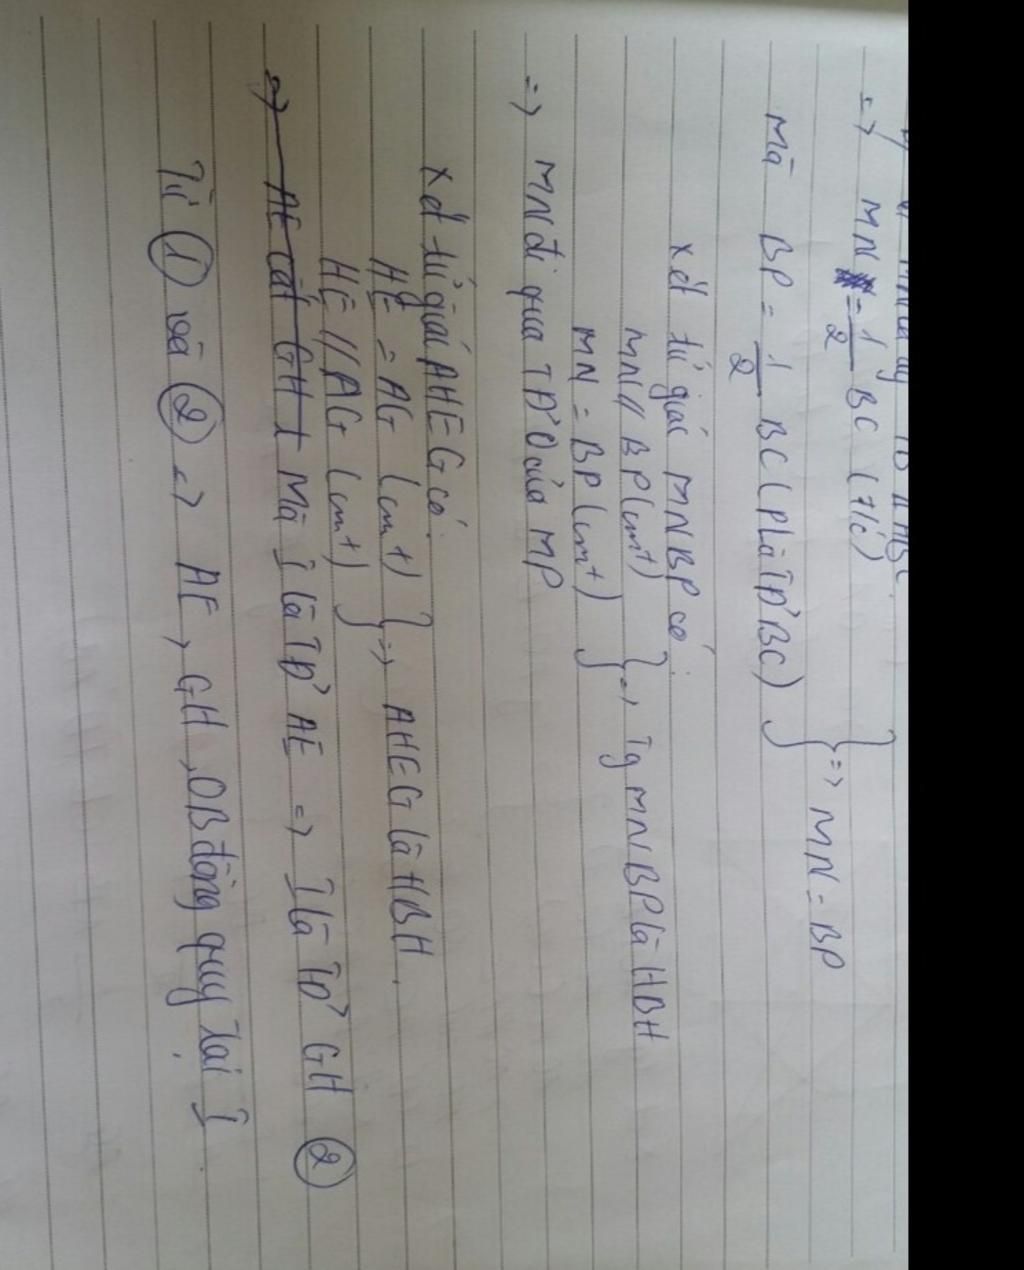 => MN = 1/2 BC (t/c)
Mà BP = 1/2 BC (P là TĐ' BC) } => MN = BP
Xét tứ giác MNBP có:
MN // BP (cmt)
MN = BP (cmt) } => Tg MNBP là HBH
=> MN đi qua TĐ' O của MP
Xét tứ giác AHEG có:
HE = AG (cmt)
HE // AG (cmt) } => AHEG là HBH.
=> AE cắt GH t Mà I là TĐ' AE => I là TĐ' GH (2)
Từ (1) và (2) => AE, GH, OB đồng quy tại I.